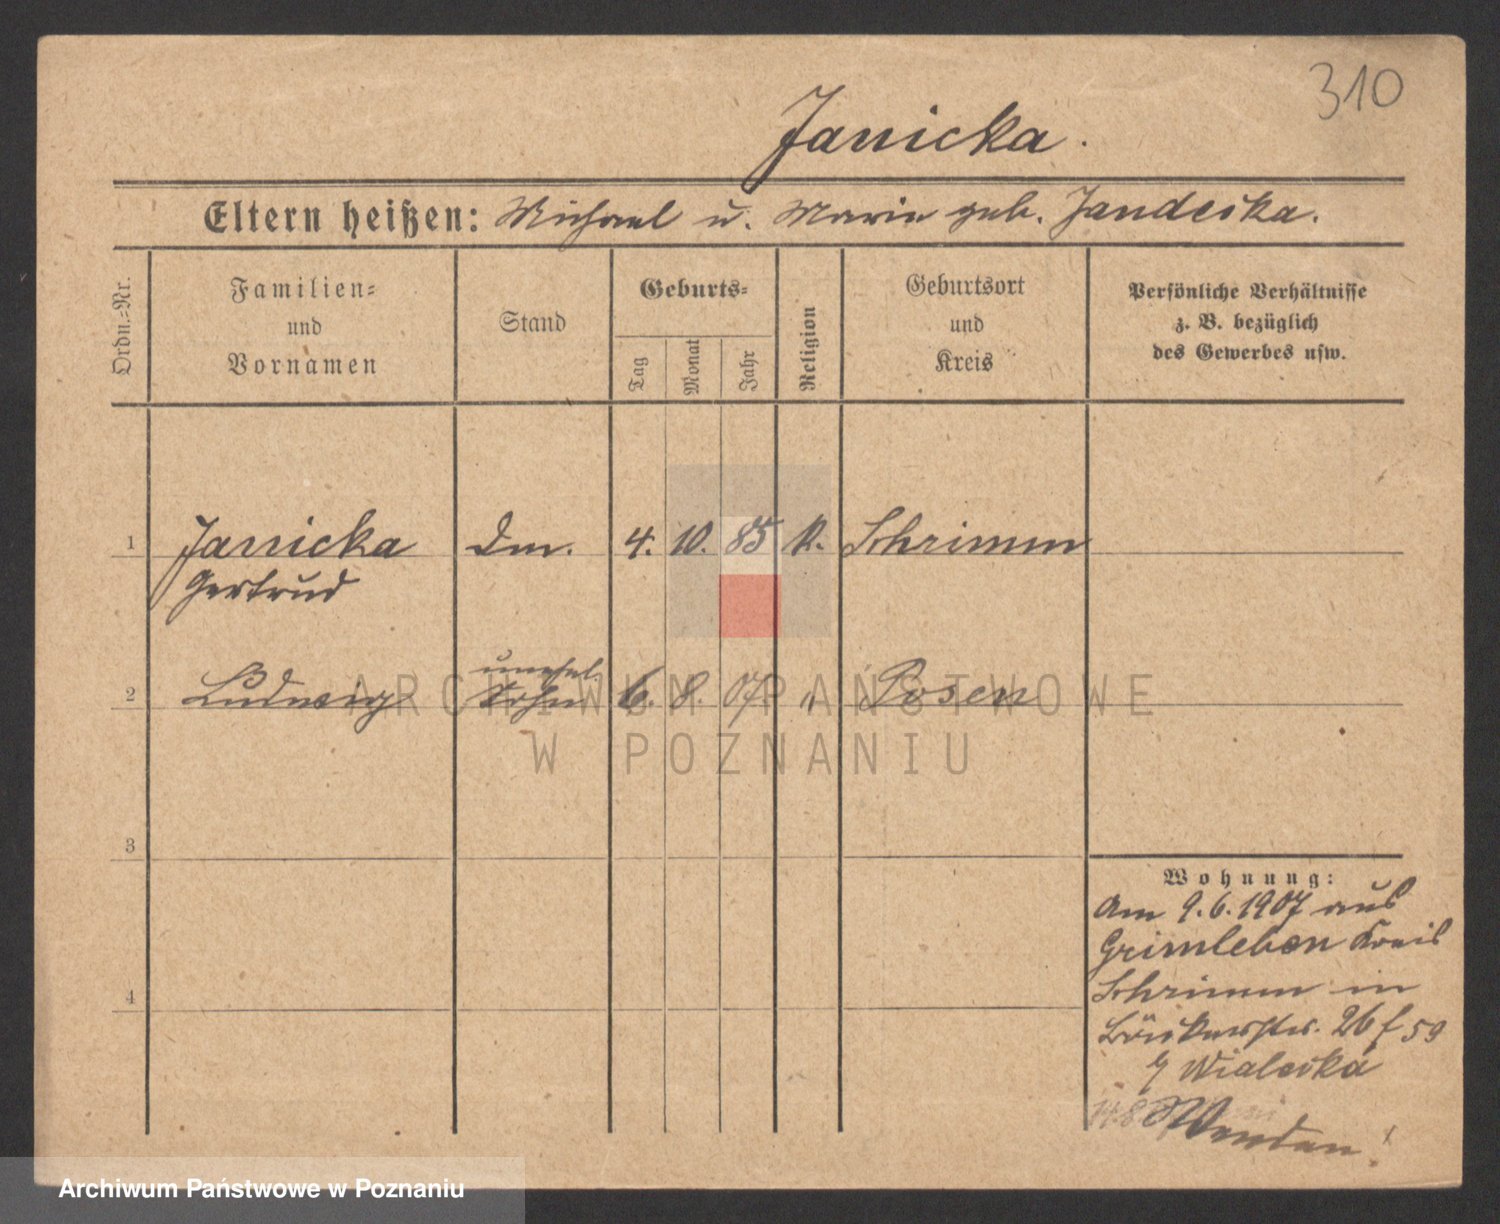 310
Janicka.
Eltern heißen: Michael u. Marie geb. Jandecka.
Ordn.-Nr.
Familien-
und
Vornamen
Stand
Geburts-
Tag
Monat
Jahr
Religion
Geburtsort
und
Kreis
Persönliche Verhältnisse
z. B. bezüglich
des Gewerbes usw.
1 Janicka Dm. 4. 10. 85 k. Schrimm
Gertrud
unehel.
2 Ludwig Sohn 6. 8. 07 " Posen
ARCHIWUM PAŃSTWOWE
W POZNANIU
3
4
Wohnung:
Am 9.6.1907 aus
Grimleben Kreis
Schrimm in
26 f 59
Wialecka
14.8
Wenden!
Archiwum Państwowe w Poznaniu